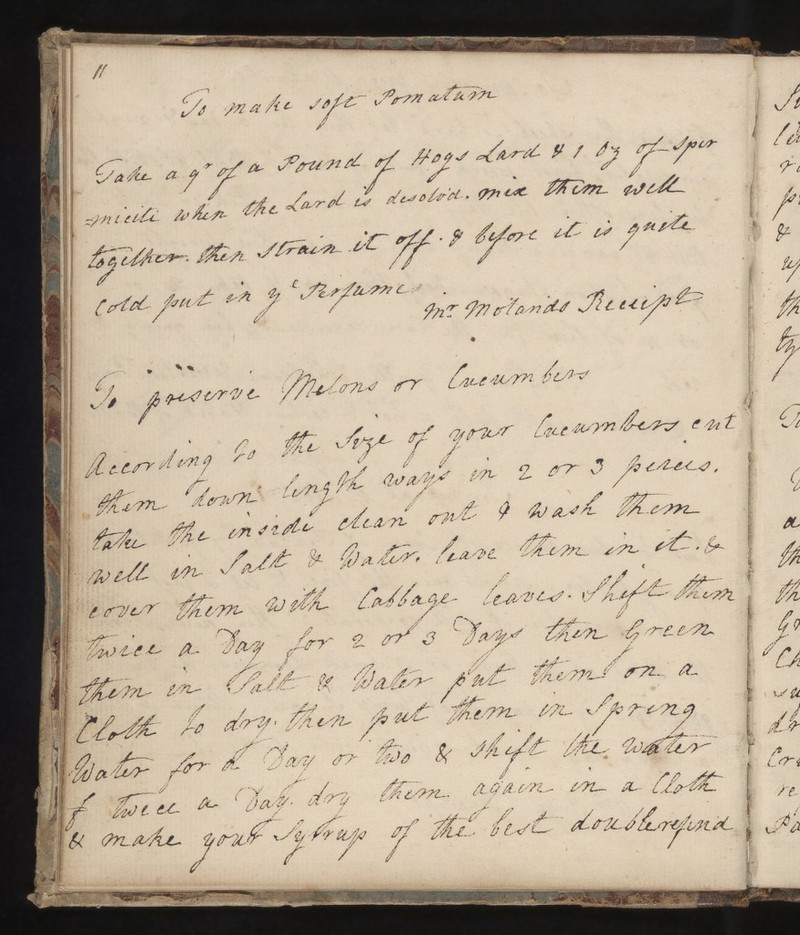 11
To make soft Pomatum
Take a qr of a Pound of Hogs Lard & 1 Oz of Sper
=miciti when the Lard is desolvd. mix them well
together. then strain it off. & before it is quite
Cold put in ye Perfume
Mr. Molands Receipt
To preserve Melons or Cucumbers
According to the Size of your Cucumbers cut
them down length ways in 2 or 3 peices.
take the inside clean out & wash them
well in Salt & Water. leave them in it. &
cover them with Cabbage leaves. Shift them
twice a Day for 2 or 3 Days then Green
them in Salt & Water put them on a
Cloth to dry. then put them in Spring
Water for a Day or two & shift the Water
twice a Day. dry them again in a Cloth
& make your Syrrup of the best doublerefind